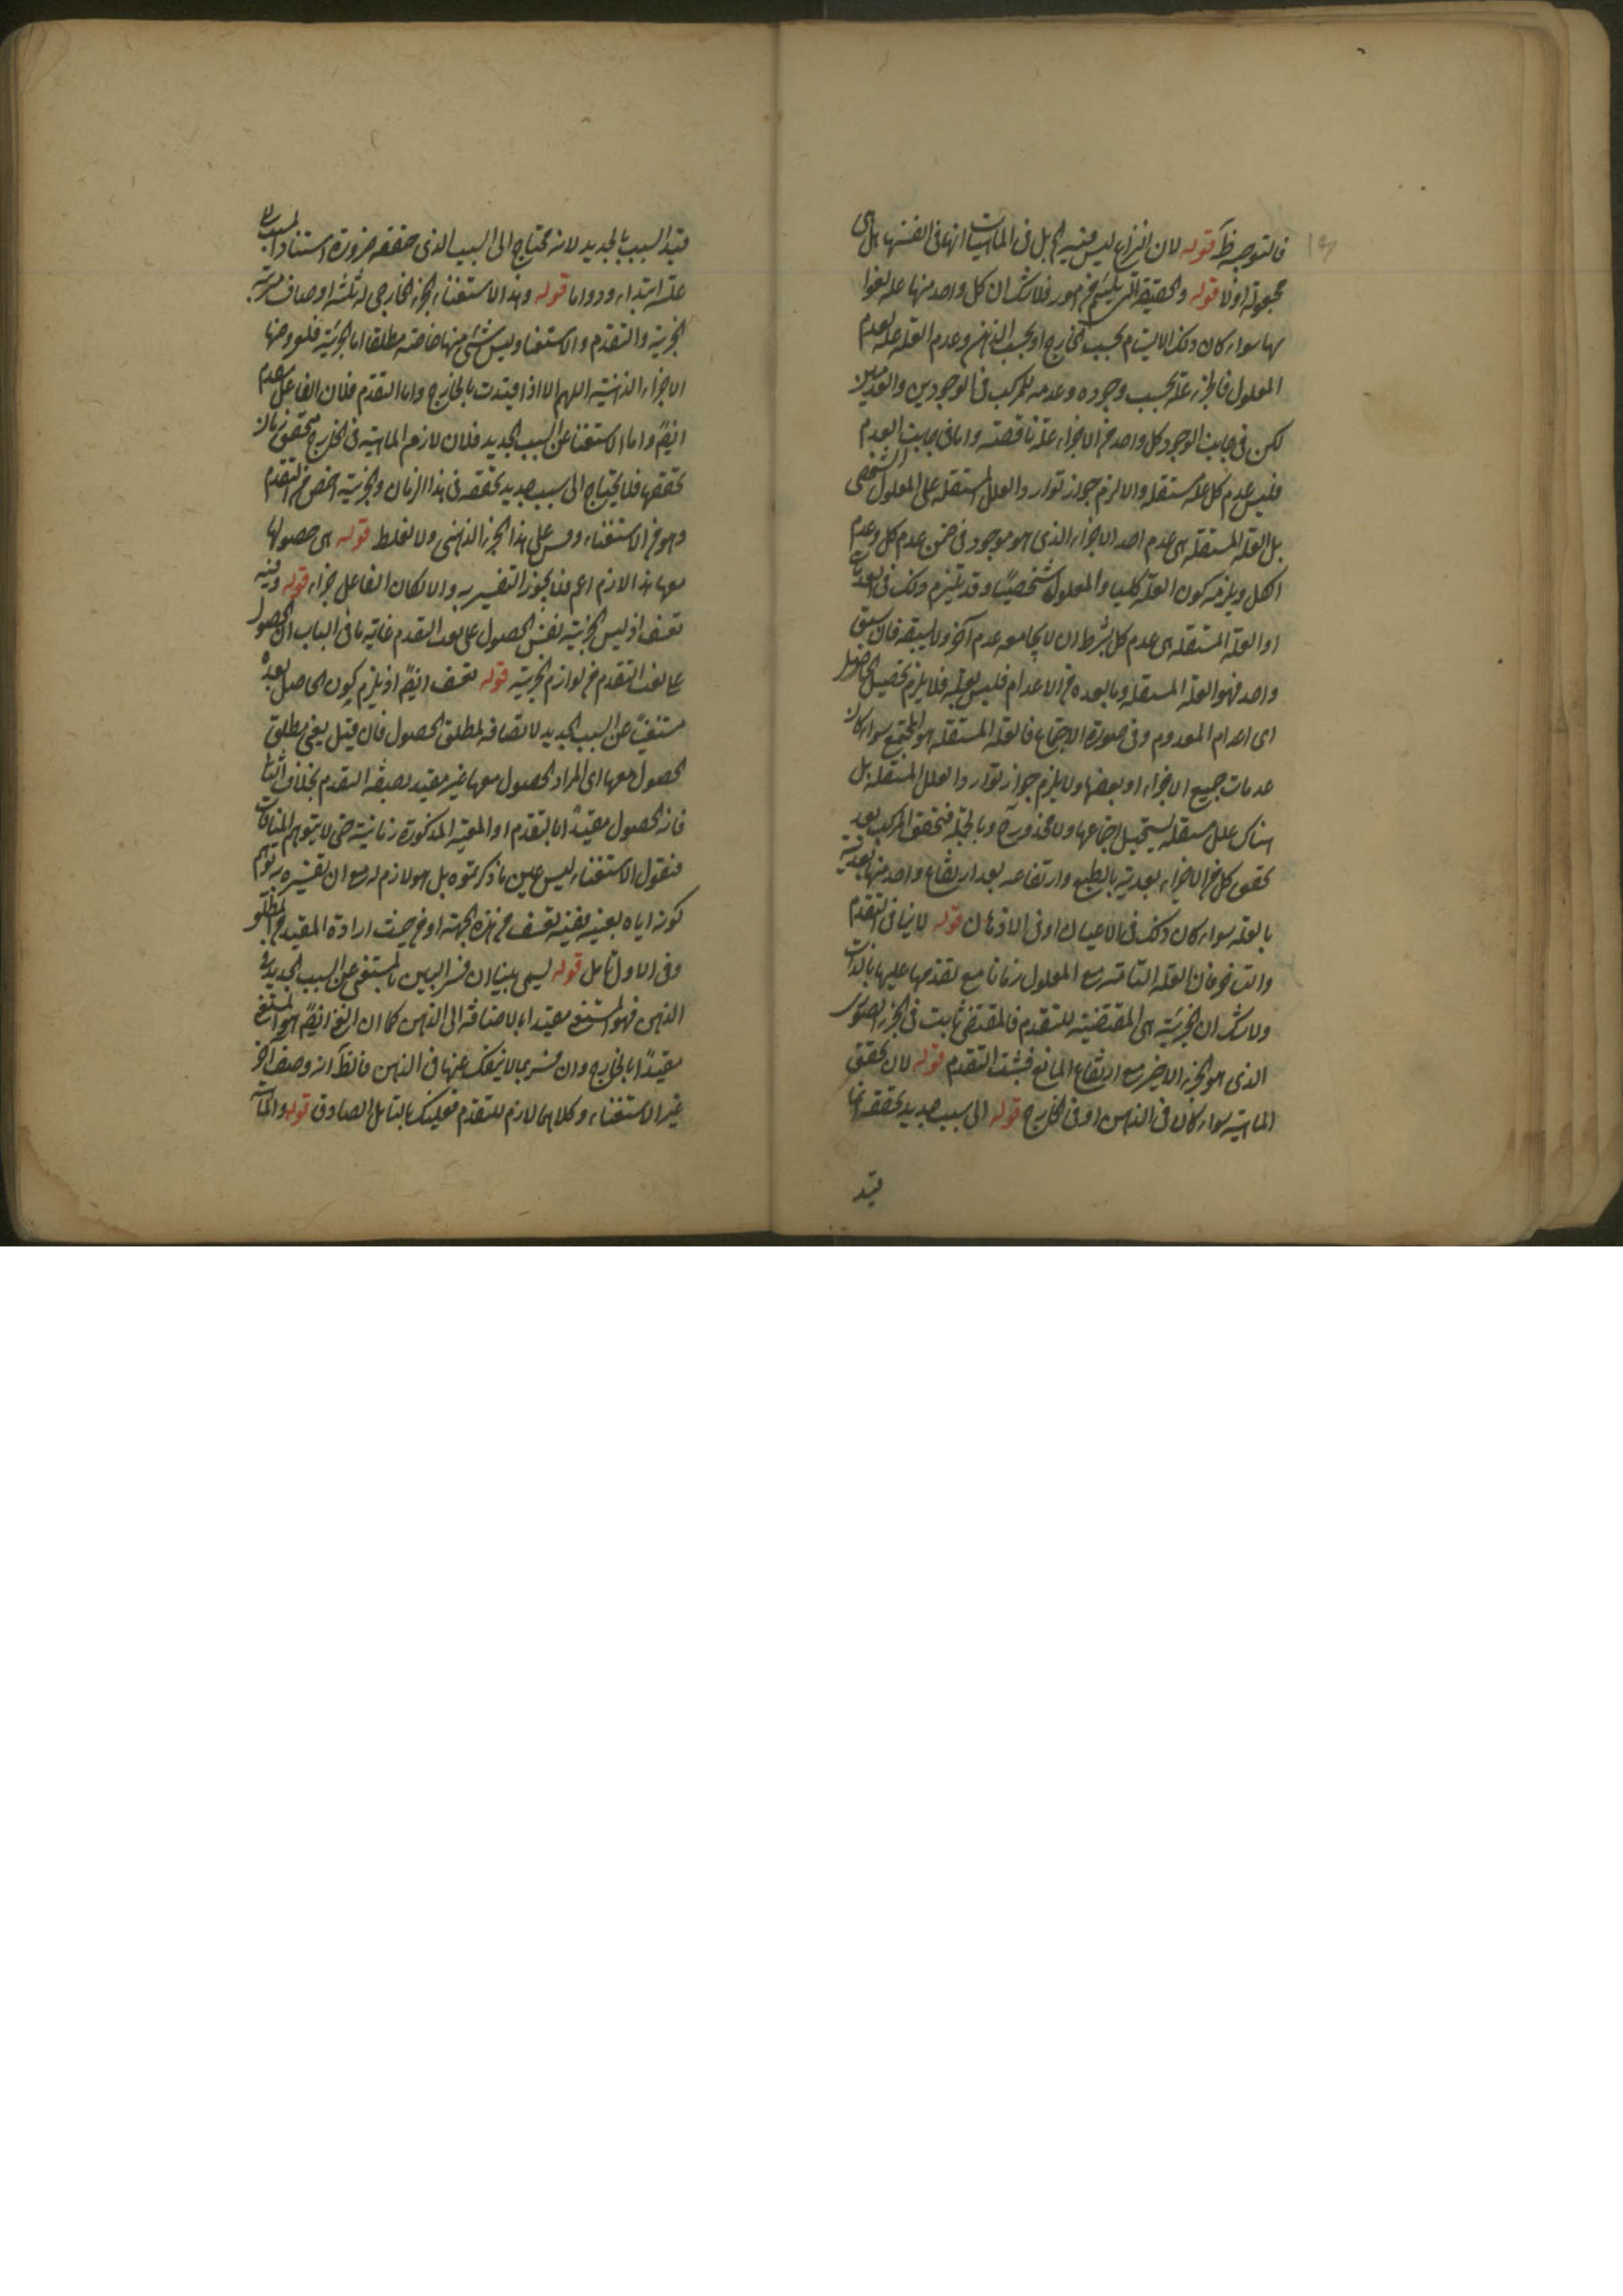 فالتوجيه ظ قوله لان النزاع ليس فيه اه بل فى الماهيات انها فى انفسها هل هى
مجعولة او لا قوله والحقيقة التى يلتئم من امور فلا شك ان كل واحد منها علة لقوا
مها سواء كان ذلك الالتيام بحسب الخارج او بحسب الذهن وعدم العلة علة لعدم
المعلول فالجزء علة بحسب وجوده وعدمه للمركب فى الوجودين والعدمين
لكن فى جانب الوجود كل واحد من الاجزاء علة ناقصة واما فى جانب العدم
فليس عدم كل علة مستقلة والا لزم جواز توارد العلل المستقلة على المعلول الشخصى
بل العلة المستقلة هى عدم احد الاجزاء الذى هو موجود فى ضمن عدم كل وعدم
الكل ويلزمه كون العلة كليا والمعلول شخصيا وقد يلتزم ذلك فى العدميات
او العلة المستقلة هى عدم كل بشرط ان لا يجامعه عدم آخر ولا يسبقه فان سبق
واحد فهو العلة المستقلة وما بعده من الاعدام فليس بعلة فلا يلزم تحصيل الحاصل
اى اعدام المعدوم وفى صورة الاجتماع فالعلة المستقلة هو المجتمع سواء كان
عدمات جميع الاجزاء او بعضها ولا يلزم جواز توارد العلل المستقلة بل
هناك علل مستقلة يستحيل اجتماعها ولا محذور فيه وبالجملة فتحقق المركب بعد
تحقق كل من الاجزاء بعدية بالطبع وارتفاعه بعد ارتفاع واحد منها بعدية
بالعلة سواء كان ذلك فى الاعيان او فى الاذهان قوله لا ينافى التقدم
والتاخر فان العلة التامة مع المعلول زمانا مع تقدمها عليها بالذات
ولا شك ان الجزئية هى المقتضية للتقدم فالمقتضى ثابت فى الجزء الصورى
الذى هو الجزء الاخير مع ارتفاع المانع فيثبت التقدم قوله لان تحقق
الماهية سواء كان فى الذهن او فى الخارج قوله الى سبب جديد لتحققه انما
قيد
قيد السبب بالجديد لانه محتاج الى السبب الذى حققه ضرورة استناد المسبب الى
علته ابتداء ودواما قوله وهذا الاستغناء الجزء الخارجى له ثلثة اوصاف مرتبة
الجزئية والتقدم والاستغنا وليس شئ منها خاصة مطلقا اما الجزئية فلعروضها
الاجزاء الذهنية اللهم الا اذا قيدت بالخارج واما التقدم فلان الفاعل متقدم
ايضً واما الاستغنا عن السبب الجديد فلان لازمه الماهية فى الخارج متحقق زمان
تحققها فلا يحتاج الى سبب جديد لتحققه فى هذا الزمان والجزئية اخص من التقدم
وهو من الاستغناء وقس على هذا الجزء الذهنى ولا تغلط قوله هى حصولها
معها هذا لازم اعم فلا يجوز التفسير به والا لكان الفاعل جزاء قوله وفيه
تعسف اذ ليس الجزئية نفس الحصول على نعت التقدم غاية ما فى الباب ان الحصول
على نعت التقدم من لوازم الجزئية قوله تعسف ايضً اذ يلزم كون الحاصل بعده
مستغنيا عن السبب الجديد لاتصافه بمطلق الحصول فان قيل يعنى بمطلق
الحصول معها اى المراد الحصول معها غير مقيد بصفة التقدم بخلاف الثانى
فانه الحصول مقيداً اما بالتقدم او المعية المذكورة زمانية حتى لا يتوهم المنافاة
فنقول الاستغناء ليس عين ما ذكرتموه بل هو لازم له مع ان تفسيره به يوهم
كونه اياه بعينه ففيه تعسف من هذه الجهة او من حيث ارادة المقيد من المطلق
وفى الاول تامل قوله ليسمى بينا ان فسر البين بالمستغنى عن السبب الجديد فى
الذهن فهو المستغنى مقيدا بالاضافة الى الذهن كما ان الغنى ايضً هو المستغنى
مقيداً بالخارج وان فسر بما لا ينفك عنها فى الذهن فالظ انه وصف آخر
غير الاستغناء وكلاهما لازم للتقدم فعليك بالتامل الصادق قوله والماهية